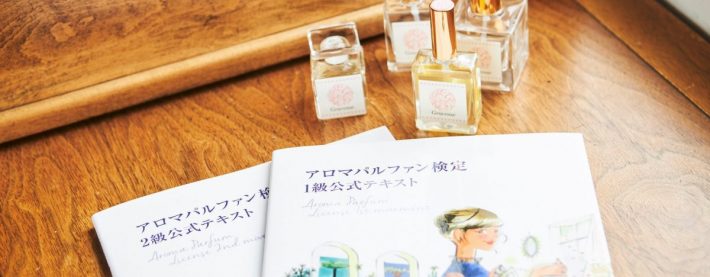 アロマパルファン検定
1級公式テキスト
Aroma Parfum
アロマパルファン検
2級公式テキスト
Aroma Parfum